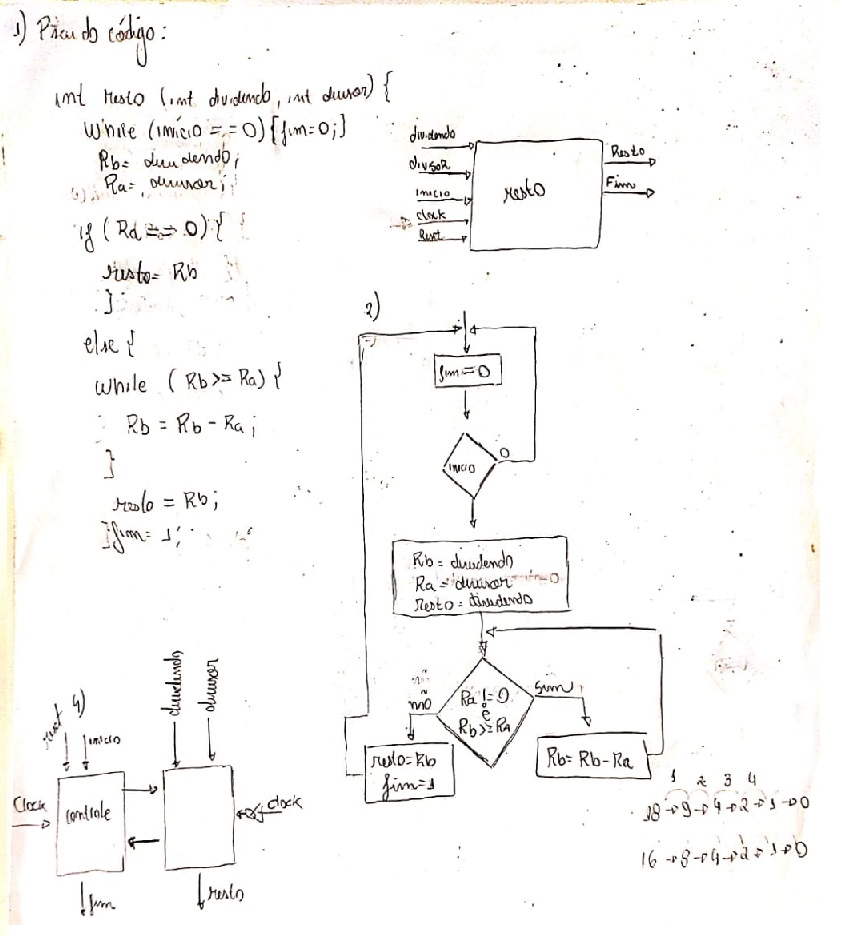 1) Pseudo código:
int resto (int dividendo, int divisor) {
while (inicio == 0) {fim=0;}
Rb= dividendo;
Ra= divisor;
if (Ra == 0) {
resto= Rb
}
else {
while ( Rb>= Ra) {
Rb = Rb - Ra;
}
resto = Rb;
}fim= 1;
dividendo
divisor
inicio
clock
Reset
resto
Resto
Fim
2)
fim=0
inicio
0
Rb= dividendo
Ra = divisor
Resto = dividendo
Ra != 0
e
Rb>=Ra
não
sim
resto=Rb
fim=1
Rb= Rb-Ra
4)
reset
inicio
dividendo
divisor
Clock
controle
clock
fim
resto
1 2 3 4
18→9→4→2→1→0
16→8→4→2→1→0